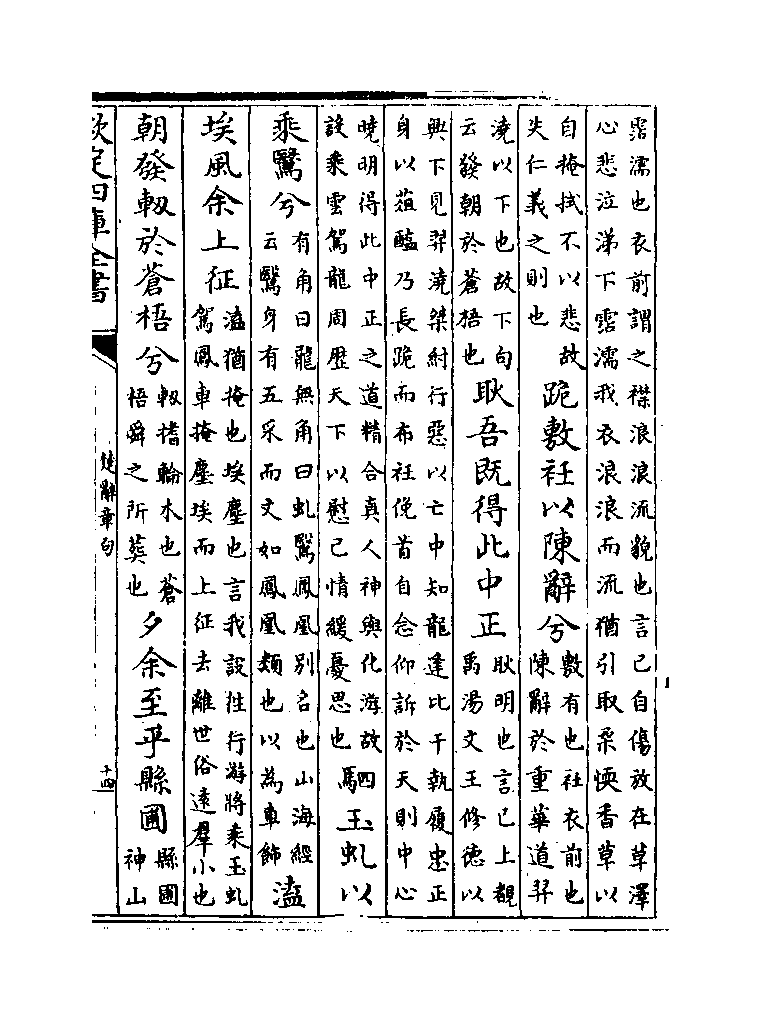 霑濡也衣前謂之襟浪浪流貌也言己自傷放在草澤
心悲泣涕下霑濡我衣浪浪而流猶引取柔愞香草以
自掩拭不以悲故
失仁義之則也
跪敷衽以陳辭兮
敷有也衽衣前也
陳辭於重華道羿
澆以下也故下句
云發朝於蒼梧也
耿吾既得此中正
耿明也言已上觀
禹湯文王修德以
興下見羿澆桀紂行惡以亡中知龍逢比干執履忠正
身以葅醢乃長跪而布衽俛首自念仰訴於天則中心
曉明得此中正之道精合真人神與化游故
設乘雲駕龍周歴天下以慰已情緩憂思也
駟玉虬以
乘鷖兮
有角曰龍無角曰虬鷖鳳凰别名也山海經
云鷖身有五采而文如鳳凰類也以為車飾
溘
埃風余上征
溘猶掩也埃塵也言我設往行游將乘玉虬
駕鳳車掩塵埃而上征去離世俗逺羣小也
朝發軔於蒼梧兮
軔搘輪木也蒼
梧舜之所葬也
夕余至乎縣圃
縣圃
神山
欽定四庫全書
楚辭章句
十四